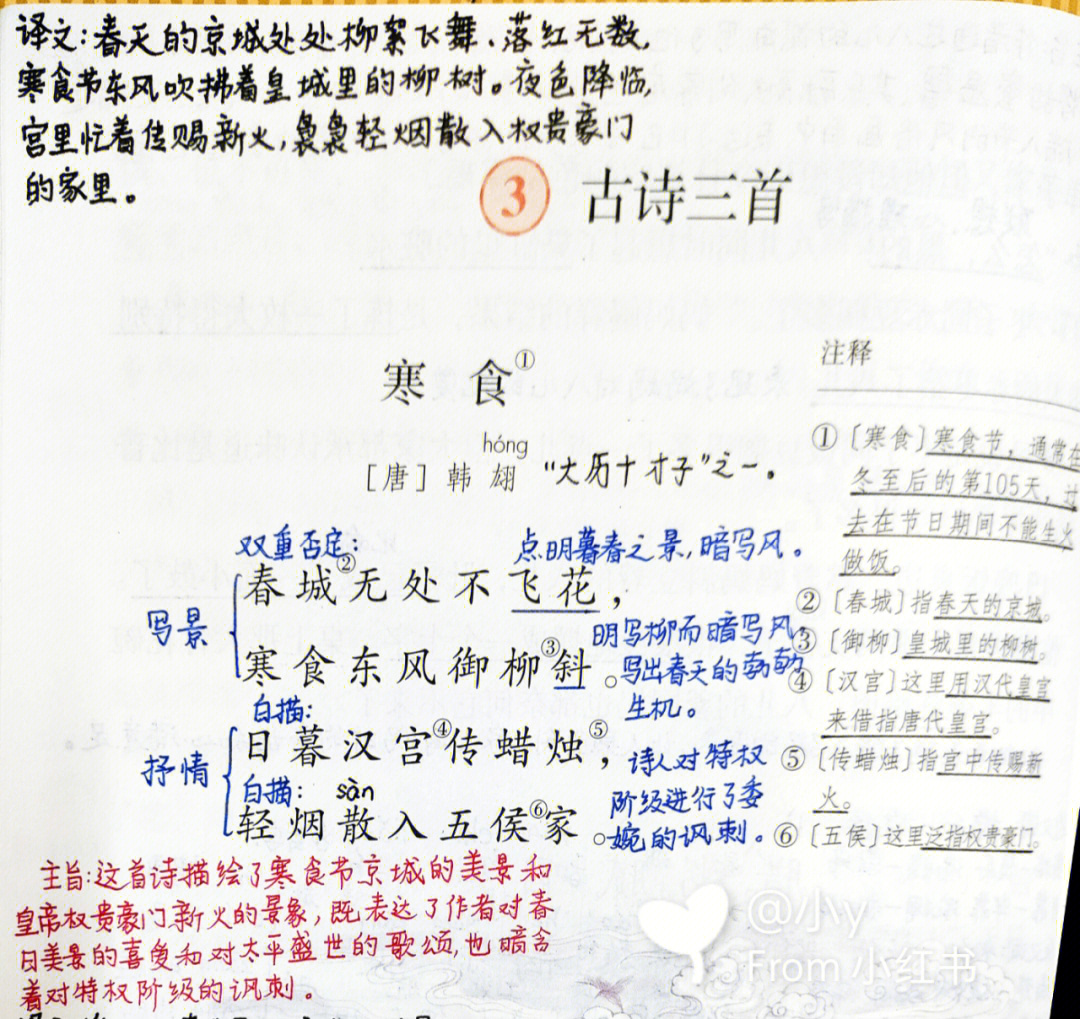 译文:春天的京城处处柳絮飞舞、落红无数,
寒食节东风吹拂着皇城里的柳树。夜色降临,
宫里忙着传赐新火,袅袅轻烟散入权贵豪门
的家里。
3 古诗三首
寒食①
hóng
[唐] 韩翃 “大历十才子”之一。
双重否定:
点明暮春之景,暗写风。
春城②无处不飞花,
写景
明写柳而暗写风,
写出春天的勃勃
生机。
寒食东风御柳③斜。
白描:
日暮汉宫④传蜡烛⑤,
抒情
白描: sàn
轻烟散入五侯⑥家。
诗人对特权
阶级进行了委
婉的讽刺。
注释
①〔寒食〕寒食节,通常在
冬至后的第105天,过
去在节日期间不能生火
做饭。
②〔春城〕指春天的京城。
③〔御柳〕皇城里的柳树。
④〔汉宫〕这里用汉代皇宫
来借指唐代皇宫。
⑤〔传蜡烛〕指宫中传赐新
火。
⑥〔五侯〕这里泛指权贵豪门。
主旨:这首诗描绘了寒食节京城的美景和
皇帝权贵豪门新火的景象,既表达了作者对春
日美景的喜爱和对太平盛世的歌颂,也暗含
着对特权阶级的讽刺。
@小yy
From 小红书